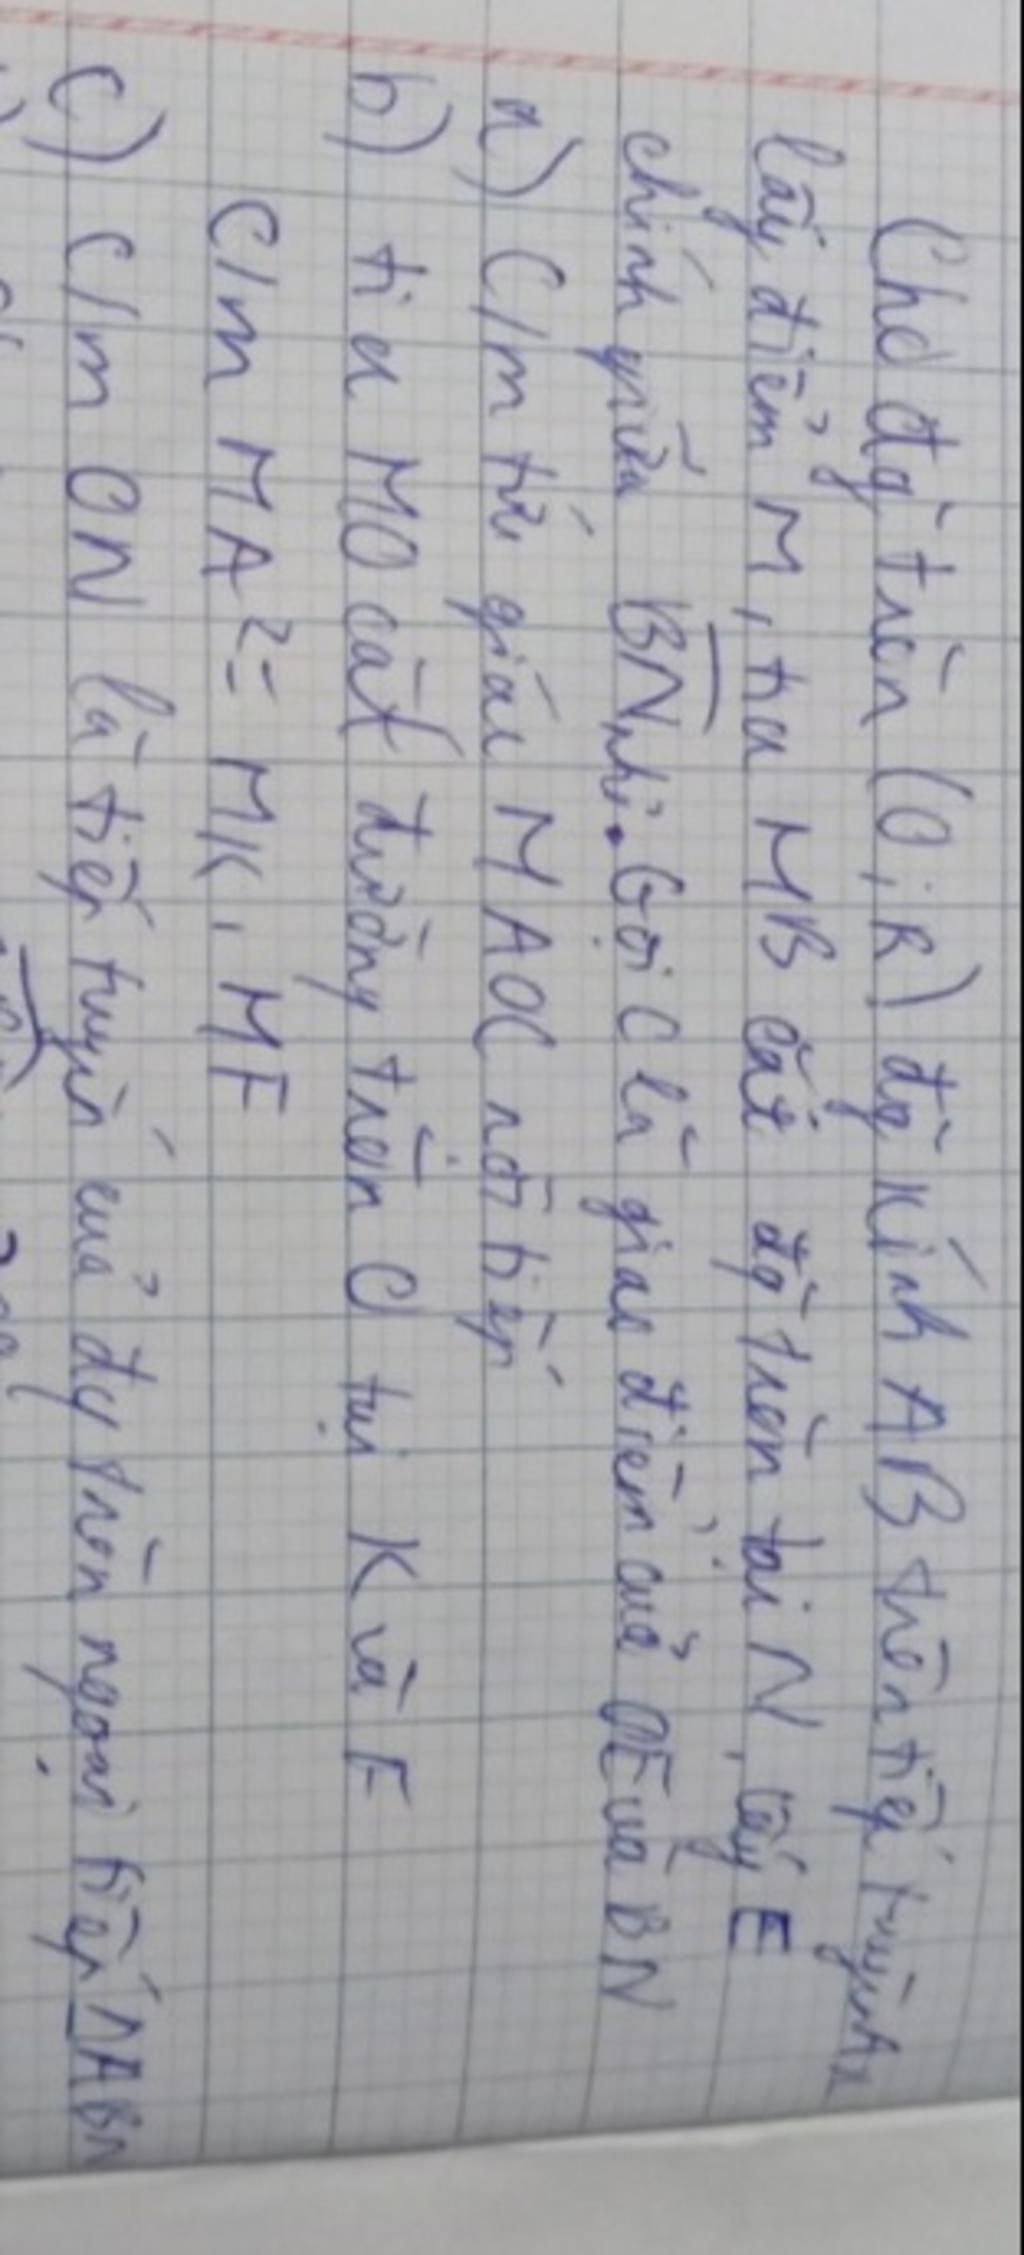 Cho đg tròn (O; R) đg kính AB trên tiếp tuyến Ax
lấy điểm M, tia MB cắt đg tròn tại N, lấy E
chính giữa BN nhỏ. Gọi C là giao điểm của OE và BN
a) C/m tứ giác MAOC nội tiếp
b) tia MO cắt đường tròn O tại K và F
C/m MA² = MK. MF
c) C/m ON là tiếp tuyến của đg tròn ngoại tiếp ΔABN